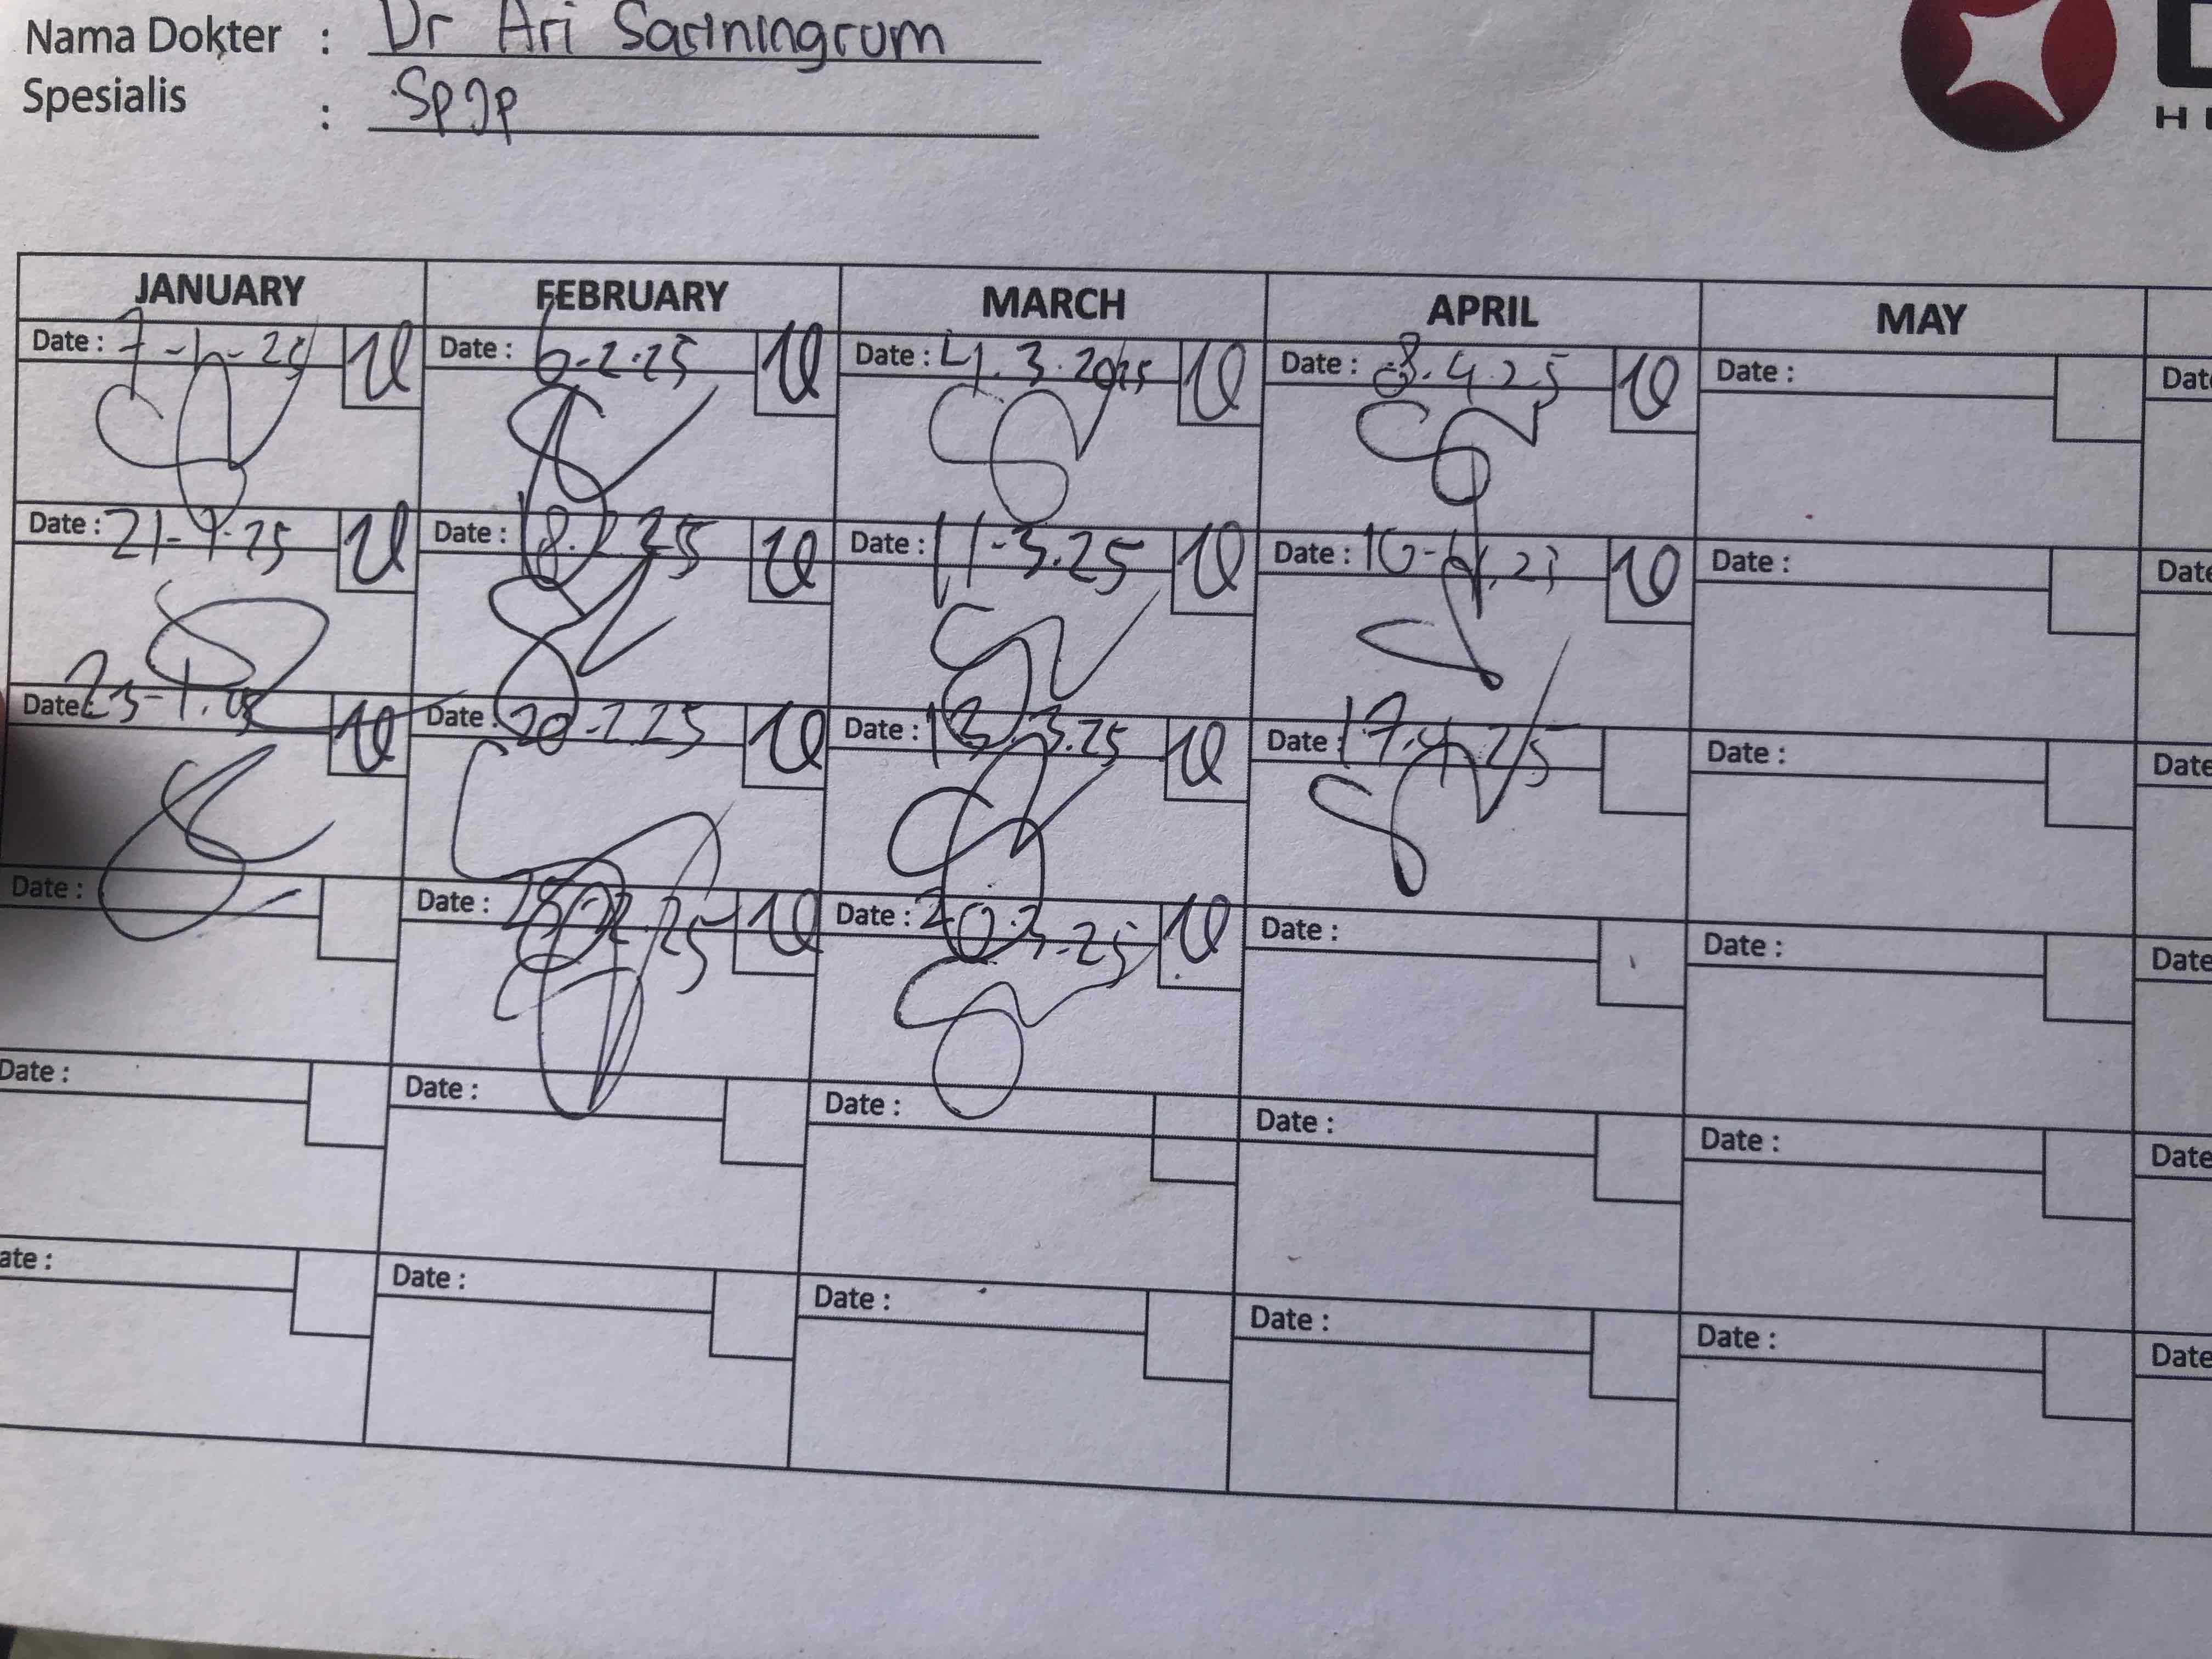 Nama Dokter : Dr Ari Sastningrum
Spesialis : SpJp
JANUARY FEBRUARY MARCH APRIL MAY
Date : 7-1-25 Date : 6-2-25 Date : 4.3.2025 Date : 8.4.25 Date :
Date : 21-1-25 Date : 18.2.25 Date : 11-3.25 Date : 10-4.25 Date :
Date : 23-1.25 Date : 20-2.25 Date : 13.3.25 Date : 17.4.25 Date : Date
Date : Date : Date : 20.3.25 Date : Date : Date
Date : Date : Date : Date : Date : Date
ate : Date : Date : Date : Date : Date